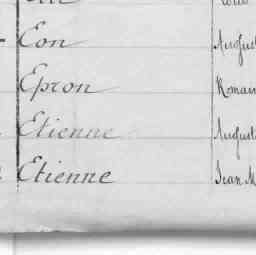 Eon August
Epron Romain
Etienne August
Etienne Jean M